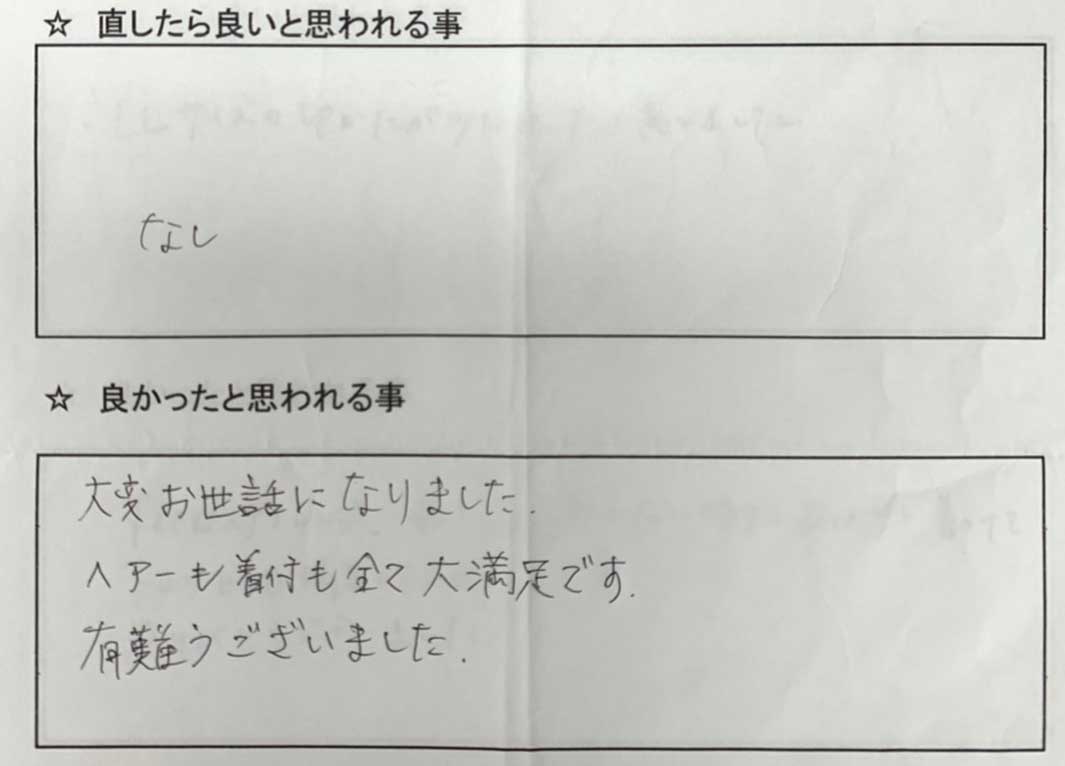 ☆ 直したら良いと思われる事
なし
☆ 良かったと思われる事
大変お世話になりました.
ヘアーも着付も全て大満足です.
有難うございました.